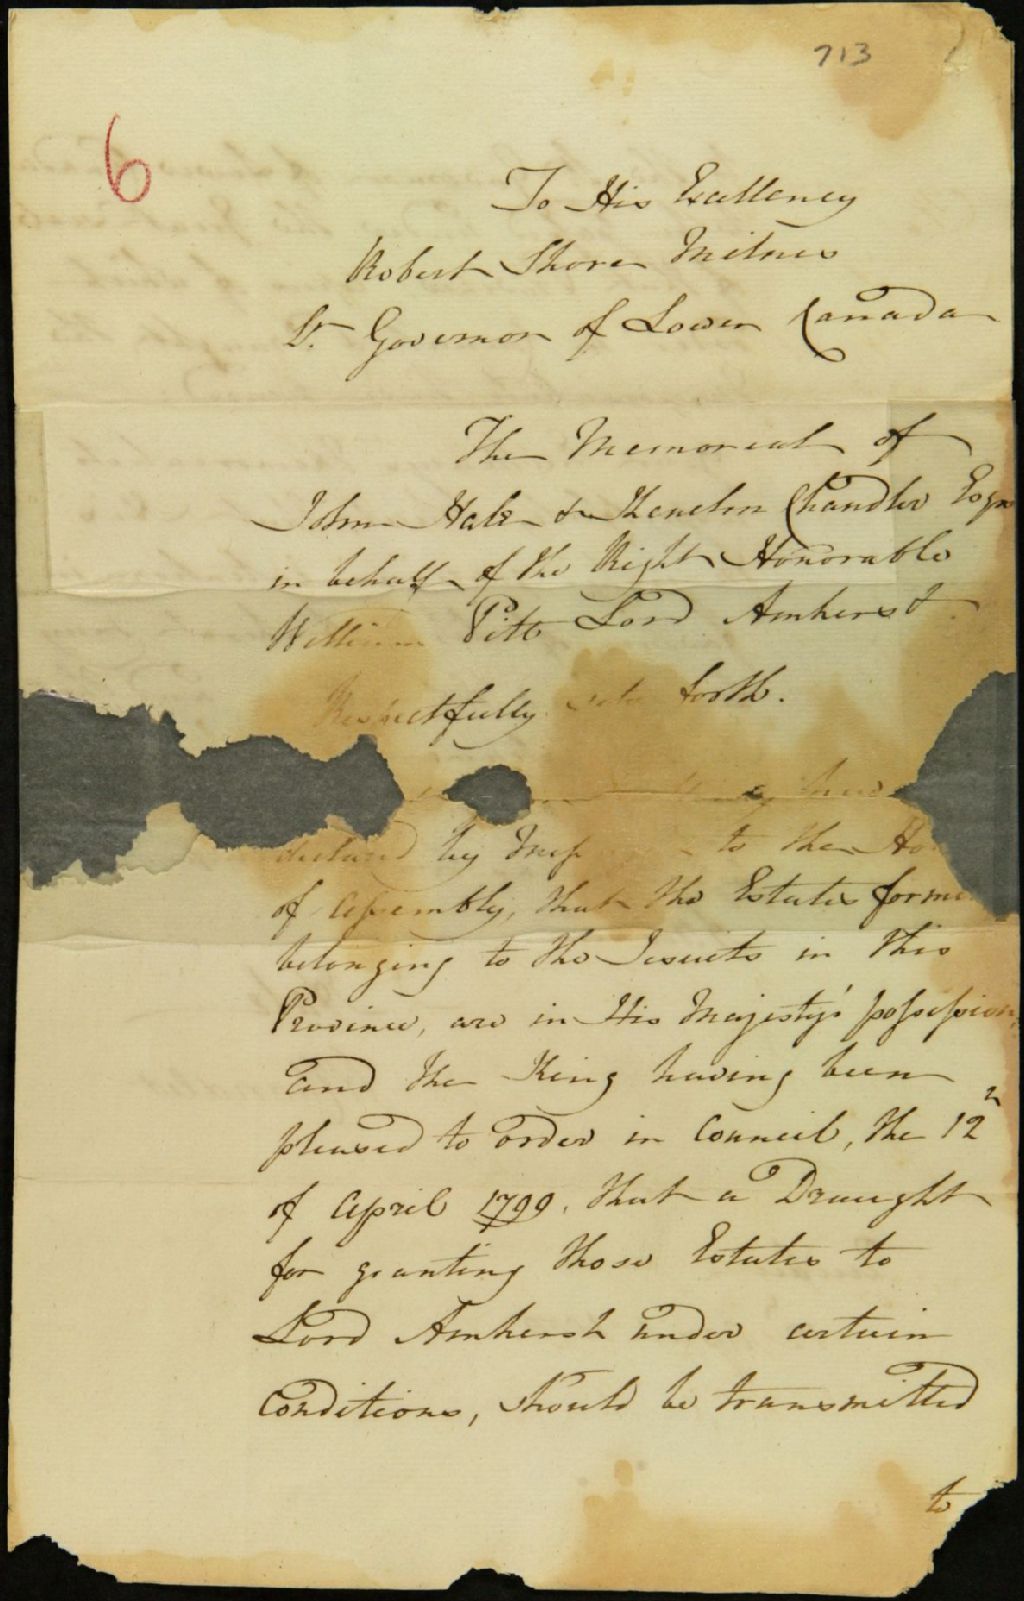 713
6
To His Excellency
Robert Shore Milnes
Lt. Governor of Lower Canada
The Memorial of
John Hale & Kenelm Chandler Esqrs
in behalf of the Right Honorable
William Pitt Lord Amherst
Respectfully sets forth.
declared by to the
of Assembly, that the Estates
belonging to the Jesuits in this
Province, are in His Majesty's possession,
and the King having been
pleased to order in Council, the 12
of April 1799. that a Draught
for granting those Estates to
Lord Amherst under certain
Conditions, should be transmitted
to